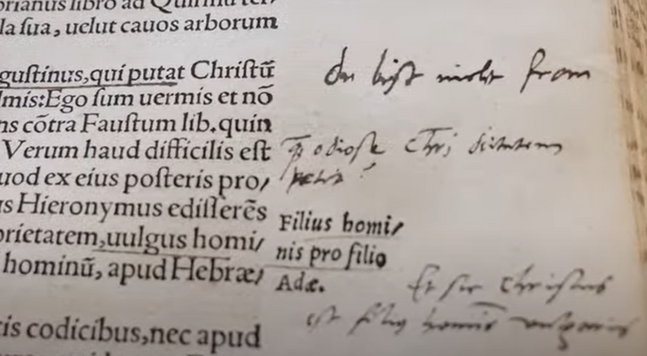 prianus libro ad Quirinū ter/
la sua, uelut cauos arborum
gustinus, qui putat Christū
lmis: Ego sum uermis et nō
ns cōtra Faustum lib. quin
Verum haud difficilis est
uod ex eius posteris pro/
us Hieronymus edisserēs
prietatem, uulgus homi/
hominū, apud Hebræ/
tis codicibus, nec apud
du bist nicht from
Filius homi/
nis pro filio
Adæ.
Et sic Christus
est filius hominis